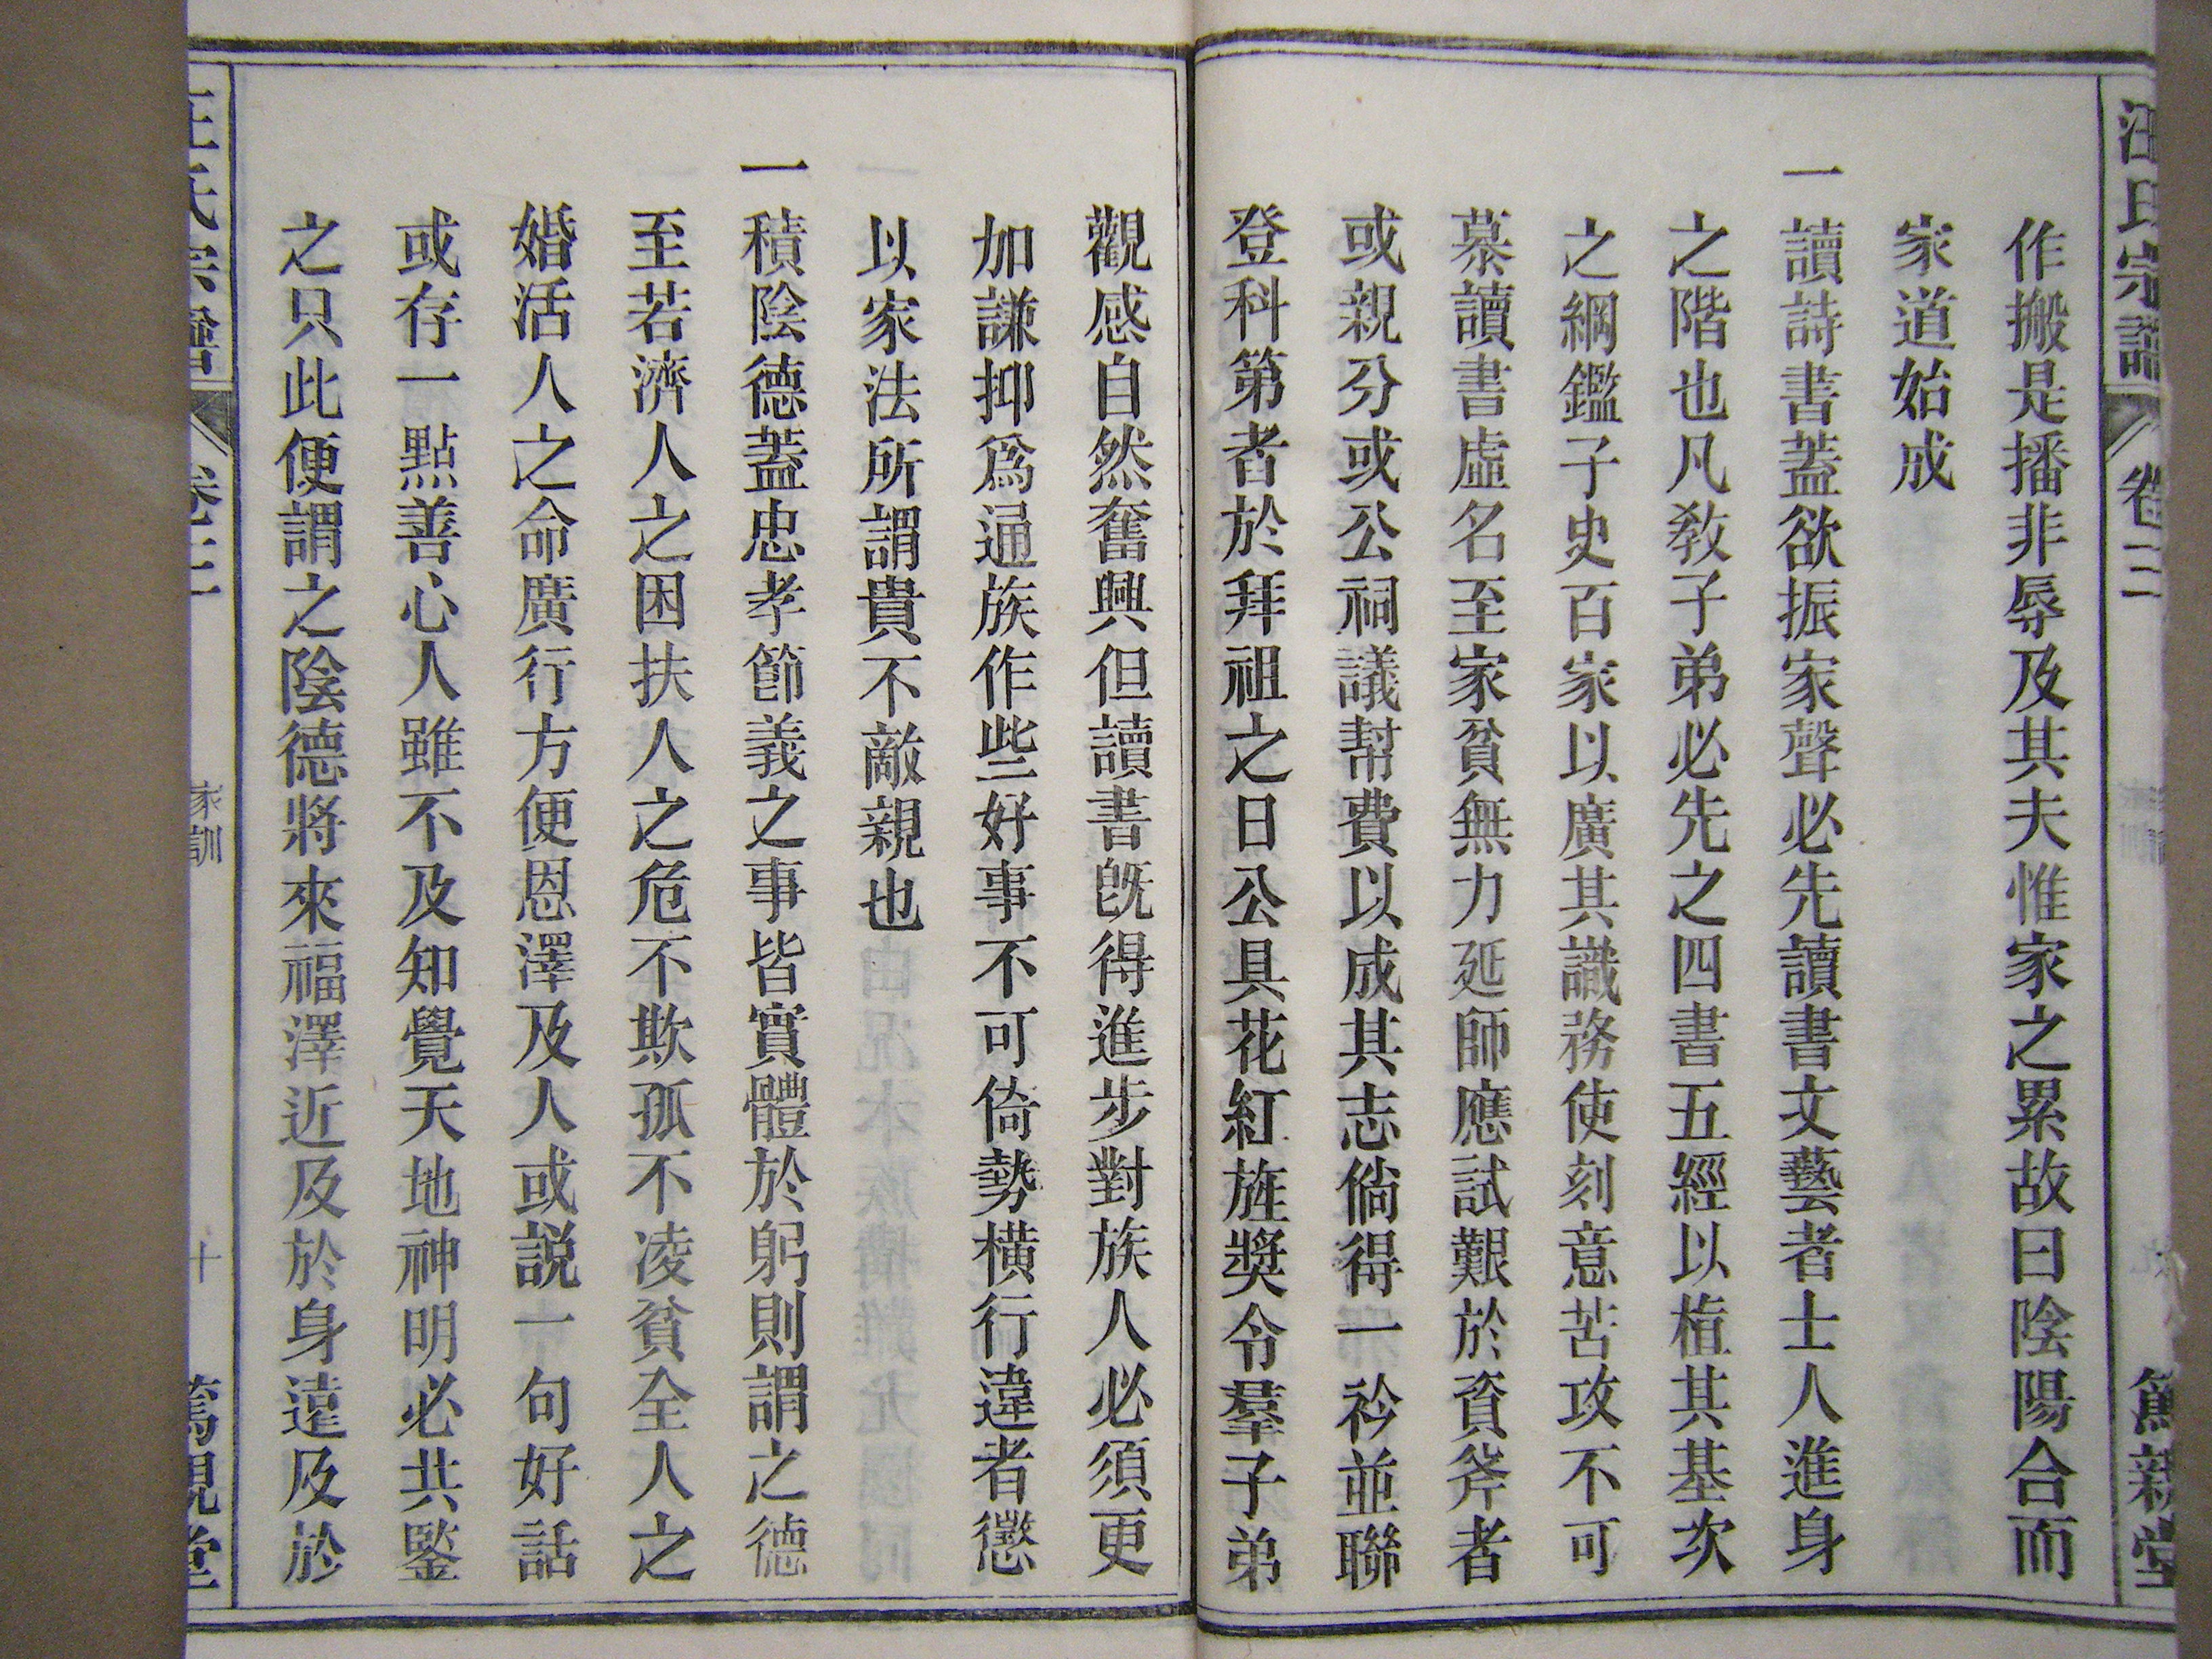 汪氏宗譜 卷三 篤親堂
作搬是播非辱及其夫惟家之累故曰陰陽合而
家道始成
一讀詩書蓋欲振家聲必先讀書文藝者士人進身
之階也凡敎子弟必先之四書五經以植其基次
之綱鑑子史百家以廣其識務使刻意苦攻不可
慕讀書虛名至家貧無力延師應試艱於資斧者
或親分或公祠議幇費以成其志倘得一衿並聯
登科第者於拜祖之日公具花紅旌奬令羣子弟
觀感自然奮興但讀書旣得進步對族人必須更
加謙抑爲通族作些好事不可倚勢橫行違者懲
以家法所謂貴不敵親也
一積陰德蓋忠孝節義之事皆實體於躬則謂之德
至若濟人之困扶人之危不欺孤不凌貧全人之
婚活人之命廣行方便恩澤及人或説一句好話
或存一點善心人雖不及知覺天地神明必共鍳
之只此便謂之陰德將來福澤近及於身遠及於
汪氏宗譜 卷三 家訓 十 篤親堂